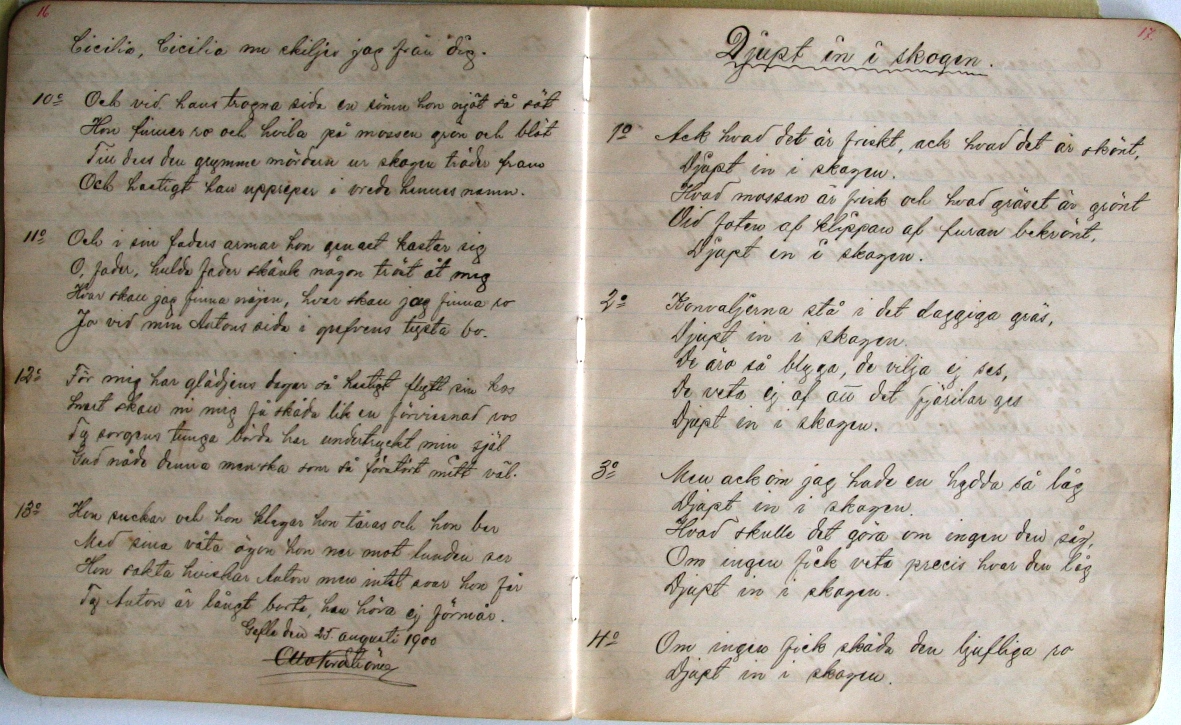 16
Cicilia, Cicilia nu skiljes jag från dig.
10º Och vid hans trogna sida en sömn hon njöt så söt
Hon finner ro och hvila på mossen grön och blöt
Till dess den grymme mördern ur skogen träder fram
Och hastigt han uppreper i vrede hennes namn.
11º Och i sin faders armar hon genast kastar sig
O, fader, hulde fader skänk någon tröst åt mig
Hvar skall jag finna nöjen, hvar skall jag finna ro
Jo vid min Antons sida i grefvens tysta bo.
12º För mig har glädjens dagar så hastigt flytt sin kos
Snart skall ni mig få skåda lik en förvissnad ros
Ty sorgens tunga börda har undertryckt min själ
Gud nåde denna menska som så förstört mitt väl.
13º Hon suckar och hon klagar hon tåras och hon ber
Med sina våta ögon hon ner mot lunden ser
Hon sakta hviskar Anton men intet svar hon får
Ty Anton är långt borta, han höra ej förmår.
Gefle den 25 augusti 1900
Otto
17
Djupt in i skogen.
1º Ack hvad det är friskt, ack hvad det är skönt,
Djupt in i skogen.
Hvad mossan är frisk och hvad gräset är grönt
Vid foten af klippan af furan bekrönt,
Djupt in i skogen.
2º Konvaljerna stå i det daggiga gräs,
Djupt in i skogen.
De äro så blyga, de vilja ej ses,
De veta ej af att det fjärilar ges
Djupt in i skogen.
3º Men ack om jag hade en hydda så låg
Djupt in i skogen.
Hvad skulle det göra om ingen den såg,
Om ingen fick veta precis hvar den låg
Djupt in i skogen.
4º Om ingen fick skåda den ljufliga ro
Djupt in i skogen.